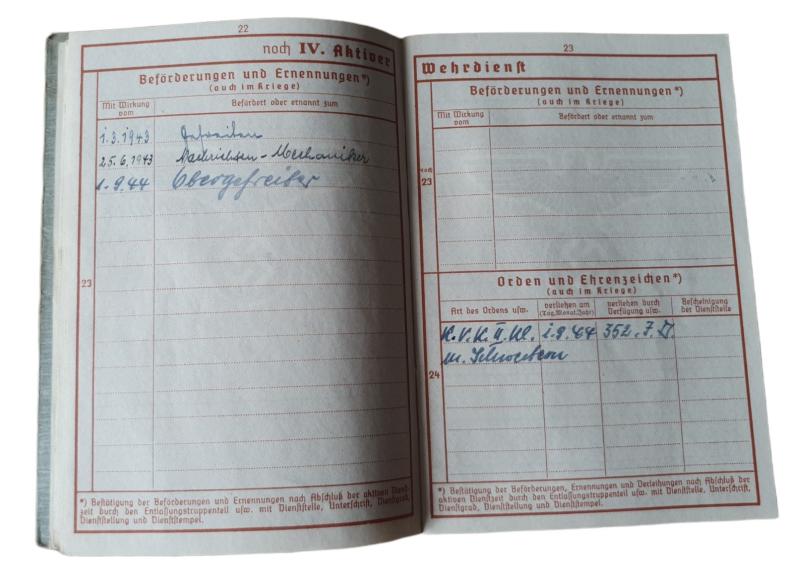 22
noch IV. Aktiver
Beförderungen und Ernennungen*)
(auch im Kriege)
Mit Wirkung vom
Befördert oder ernannt zum
1.3.1943 Gefreiten
25.6.1943 Nachrichten-Mechaniker
1.9.44 Obergefreiter
23
*) Bestätigung der Beförderungen und Ernennungen nach Abschluß der aktiven Dienst-
zeit durch den Entlassungstruppenteil usw. mit Dienststelle, Unterschrift, Dienstgrad,
Dienststellung und Dienststempel.
23
Wehrdienst
Beförderungen und Ernennungen*)
(auch im Kriege)
Mit Wirkung vom
Befördert oder ernannt zum
noch
23
Orden und Ehrenzeichen*)
(auch im Kriege)
Art des Ordens usw.
verliehen am
(Tag, Monat, Jahr)
verliehen durch
Verfügung usw.
Bescheinigung
der Dienststelle
K.V.K. II. Kl. 1.9.44 352. J.D.
m. Schwertern
24
*) Bestätigung der Beförderungen, Ernennungen und Verleihungen nach Abschluß der
aktiven Dienstzeit durch den Entlassungstruppenteil usw. mit Dienststelle, Unterschrift,
Dienstgrad, Dienststellung und Dienststempel.